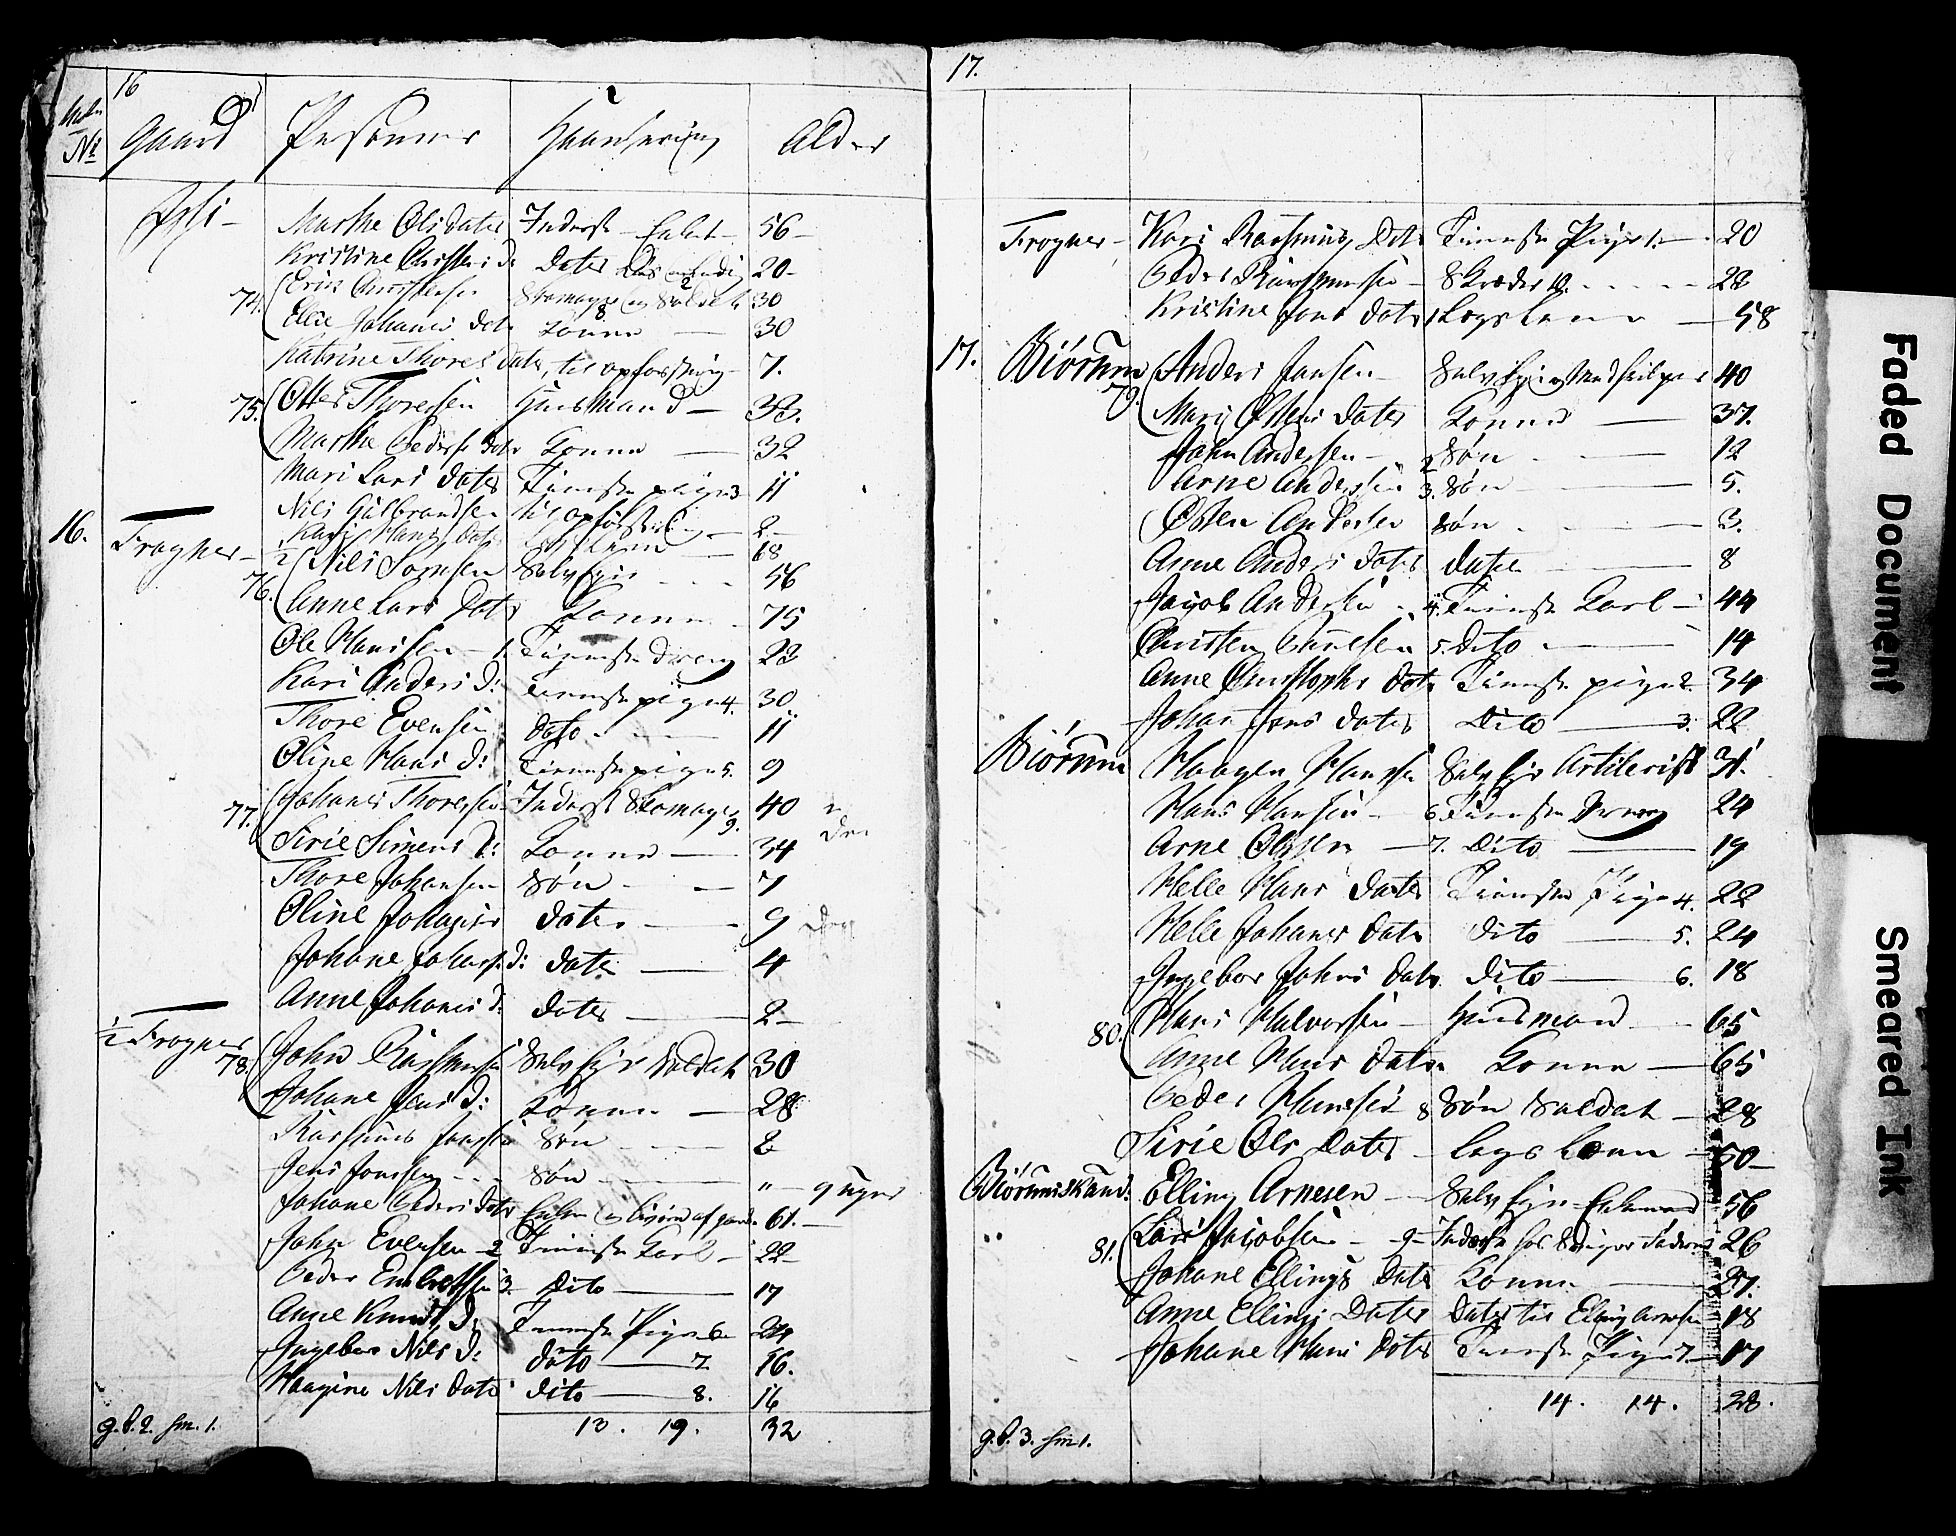 16
Matr No Gaard Personer Haandtering Alder
Marthe Olsdater Inderst Enke 56
Kristine Christens d. Dater 20
74. Erik Christensen Skomager og Soldat 30
8
Else Johanes dat Konne 30
Katrine Thores dater, til opfostring 7.
75. Otter Thoresen Huusmand 33.
Marthe Peders dat Konne 32
Mari Lars dater Tieneste pige 3 11
Nils Gulbrandsen til opfostring 2
16. Frogner Kari Hans dat 68
½ 76. Nils Larsen Selv Eyer 56
Anne Lars dat Konne 75
Ole Hansen 1. Tieneste dreng 22
Kari Anders d: Tieneste pige 4. 30
Thore Evensen dito 11
Oline Hans d: Tieneste pige 5. 9
77. Johanes Thoresen Inderst Skomager 9. 40
Sirie Simens d: Konne 34
Thore Johansen Søn 7
Oline Johanes Dater 9
Johane Johans. d: Dater 4
Anne Johanes d: Dater 2
½ Frogner 78. John Rasmussen Selv Eyer Soldat 30
Johane Jens d: Konne 28
Rasmus Jonsen Søn 2
Jens Jonsen Søn " 9 uger
Johane Peders dater Enke 61.
John Evensen 2 Tieneste Karl 22
Peder Embretsen 3. Dito 17
Anne Knuds d: Tieneste Pige 6 24
Ingebor Nils d: dito 7. 16.
Haagine Nils dater dito 8. 16
g.b. 2. hm. 1. 13. 19. 32
17.
Frogner Kari Rasmus Dat Tieneste Pige 1. 20
Peder Rasmussen Skræder 10. 22
Kristine Jons dater Logs Kone 58
17. Biørum 79. Anders Jansen Selv Eyer 40
Mari Ostens dater Konne 37.
John Andersen 2 Søn 12
Arne Andersen 3. Søn 5.
Osten Andersen Søn 3.
Anne Anders dater dater 8
Jacob Andersen 4. Tieneste Karl 44
Christen Poulsen 5. dito 14
Anne Christophs dat Tieneste pige 2. 34
Johan Jens dater Dito 3. 22
Biørum Haagen Hansen Selv Eyer Artilerist 31.
Hans Hansen 6 Tieneste Dreng 24
Arne Olssen 7. Dito 19
Helle Hans dater Tieneste Pige 4. 22
Helle Johanes dat dito 5. 24
Ingebor Johns dat dito 6. 18
80. Hans Halvorsen Huusmand 65
Anne Hans dater Konne 65
Peder Hansen 8 Søn Soldat 28
Sirie Ols Dater Logs Konn 50
Biørumskand: Elling Arnesen Selv Eyer Enkemand 56
81. Lars Jacobsen 9 Inderst 26
Johane Ellings Dat Konne 27.
Anne Ellings Dater Dater til Elling Arnesen 18
Johane Hans Dater Tieneste Pige 7 17
14. 14. 28.
g.b. 3. hm 1.
Faded Document
Smeared Ink